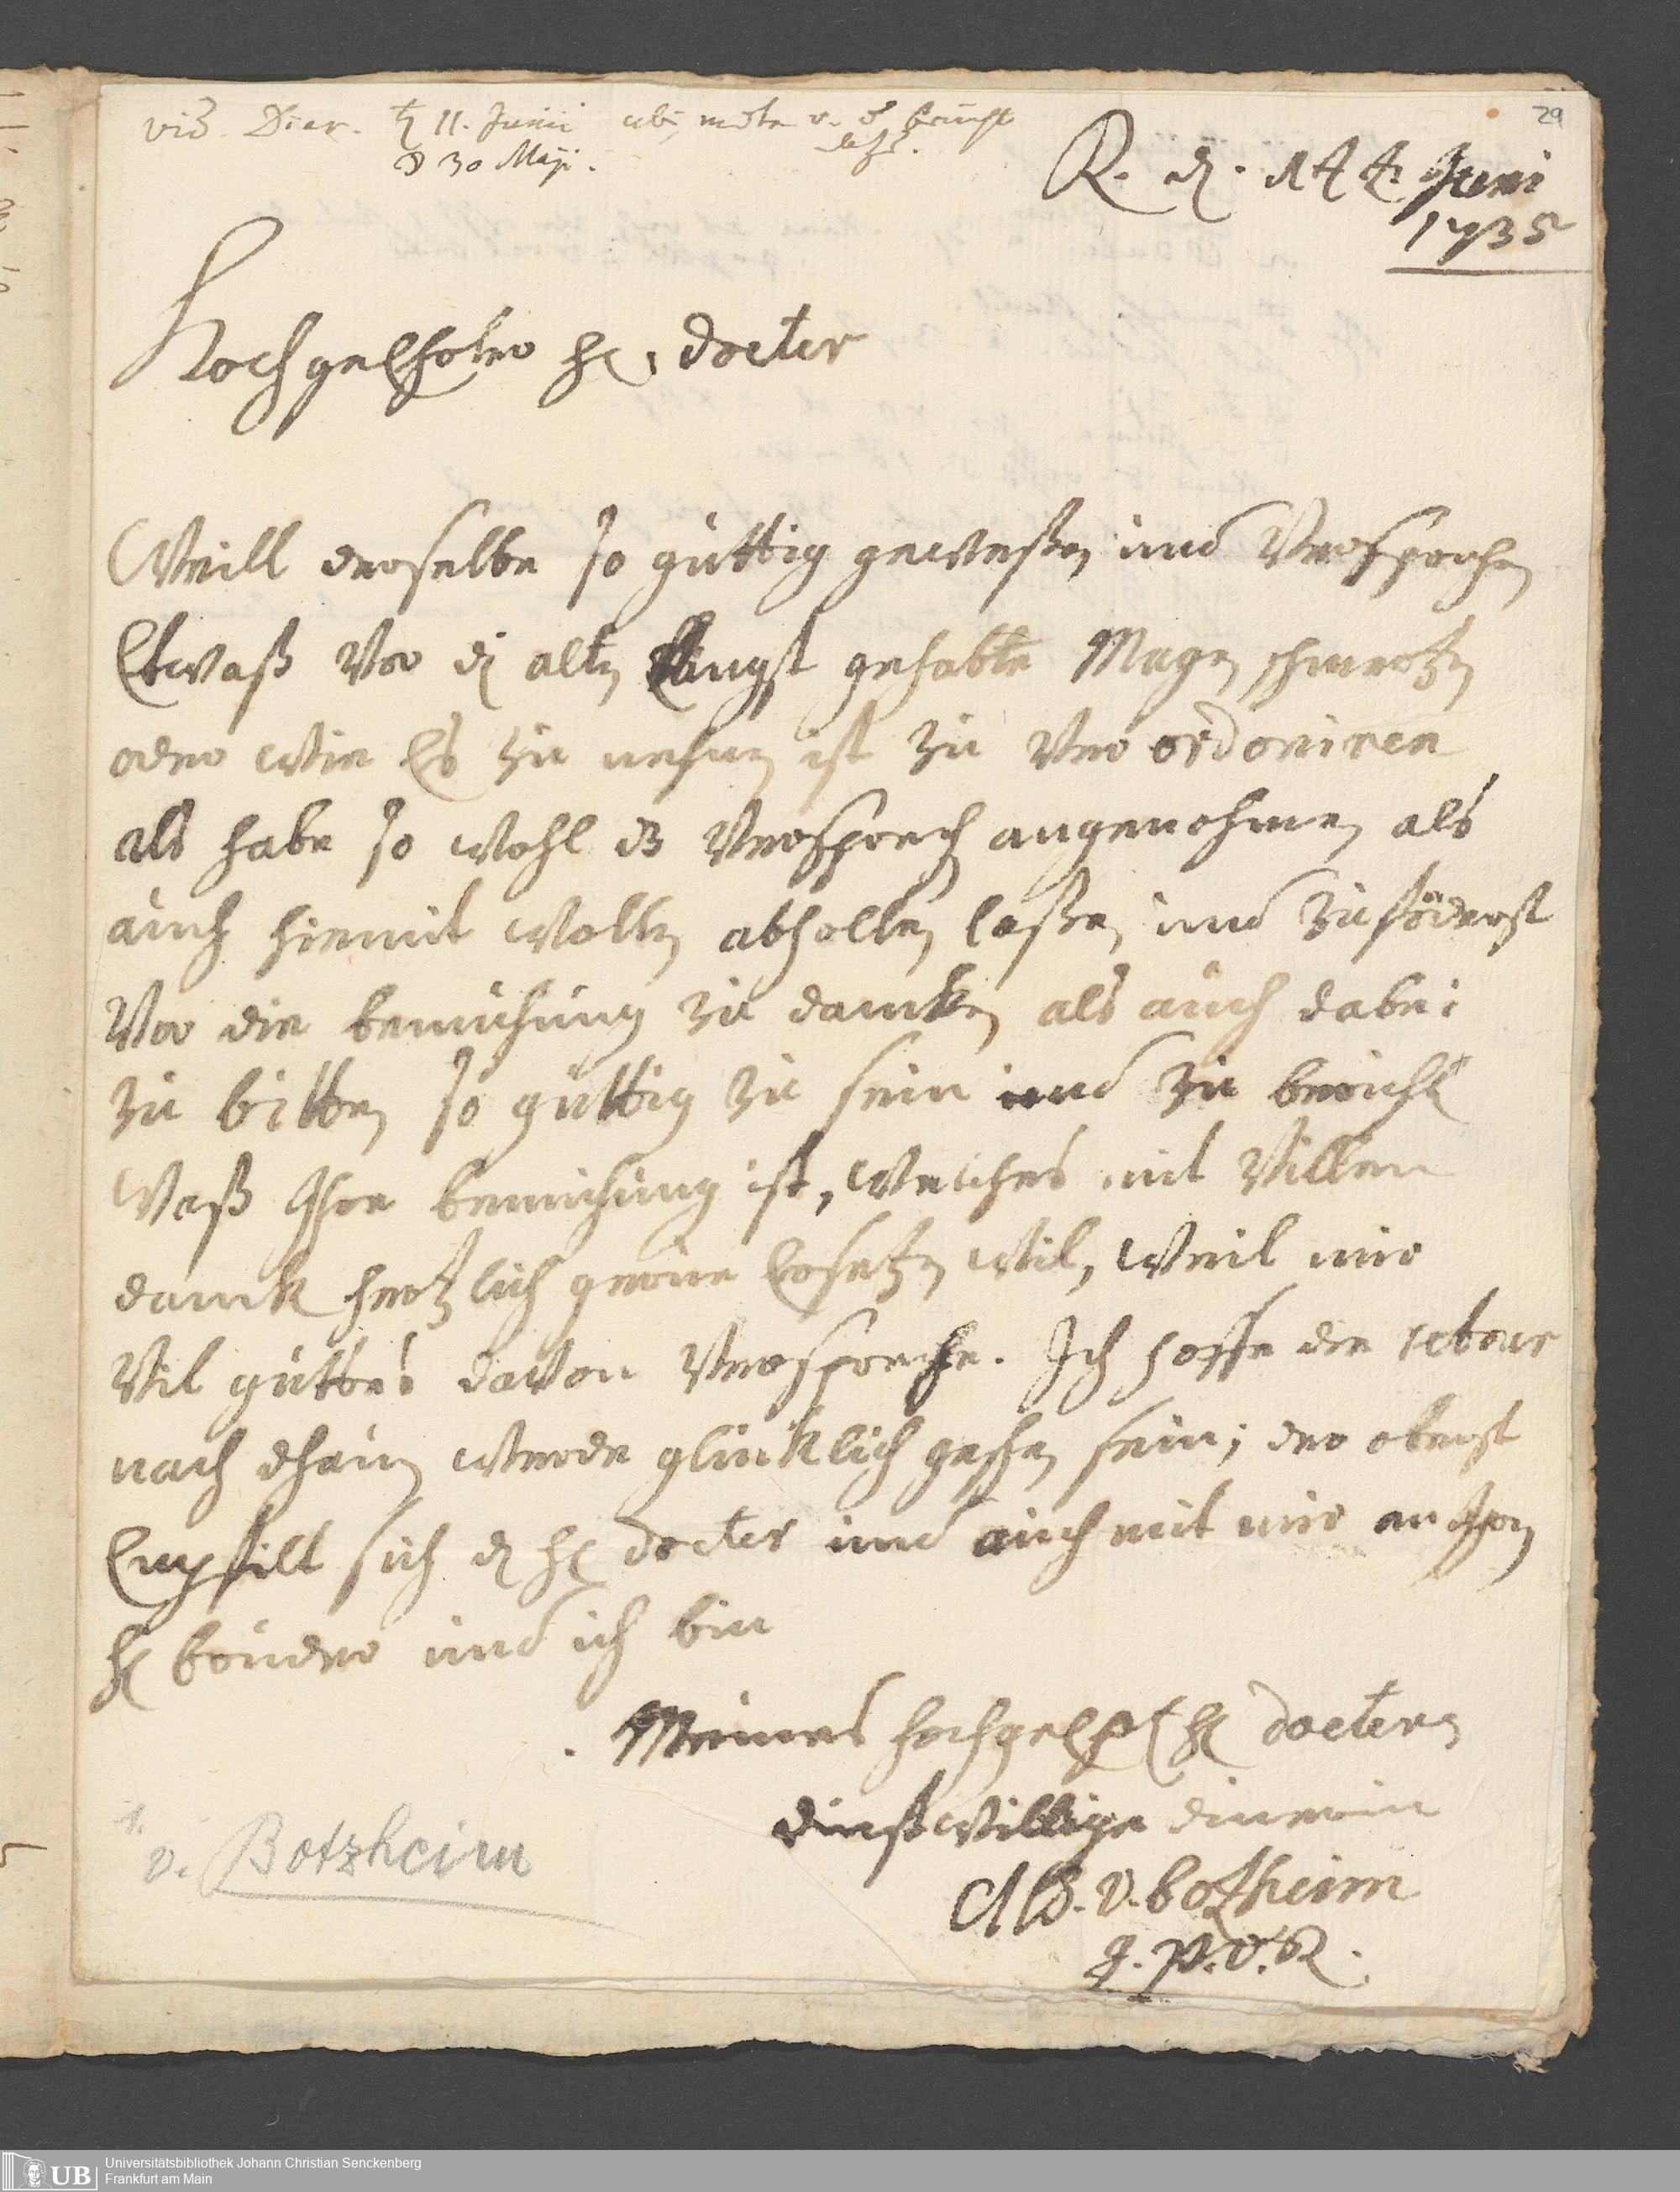 29
vid. Diar. ♄ 11. Junii ubi
☽ 30 Maji.
R. d. 14t. Juni
1735
Hochgelehrter H. docter
Weill derselbe so güttig geweßen und Versprochen
Etwaß Vor die alten längst gehabte Magen schmertzen
oder wie Es zu nehmen ist zu Ver ordoniren
als habe so wohl dz Versprechen angenohmen als
auch hiemit wollen abhollen laßen und zuföderst
Vor die bemuhung zu dancken als auch dabei
zu bitten so güttig zu sein und zu bericht
Waß Ihre bemuhung ist, welches mit Villem
danck hertzlich gerne Ersetzen wil, weil mir
Vil guttes davon Verspreche. Ich hoffe die retour
nach werde glücklich sein; der oberst
Empfilt sich d H docter und auch mit mir an Ihren
H bruder und ich bin
Meines hochgelehrt H docters
dinstwillige dinerin
v. botzheim
g. v.
v. Botzheim
UB
Universitätsbibliothek Johann Christian Senckenberg
Frankfurt am Main